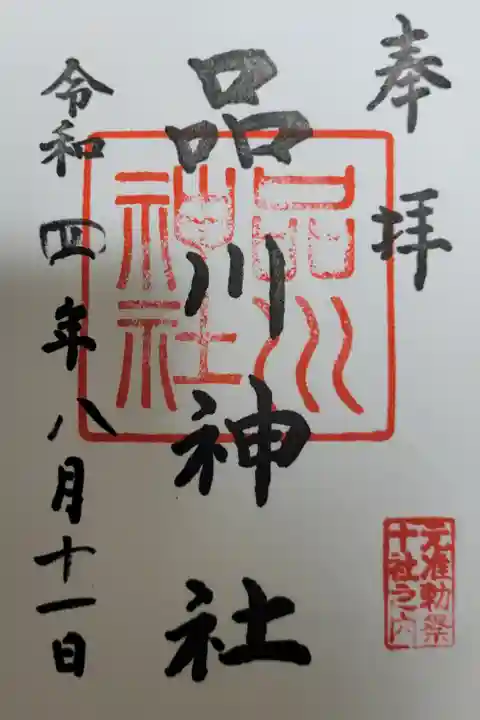 奉拝
品川神社
品川
神社
令和四年八月十一日
元准勅祭
十社之内